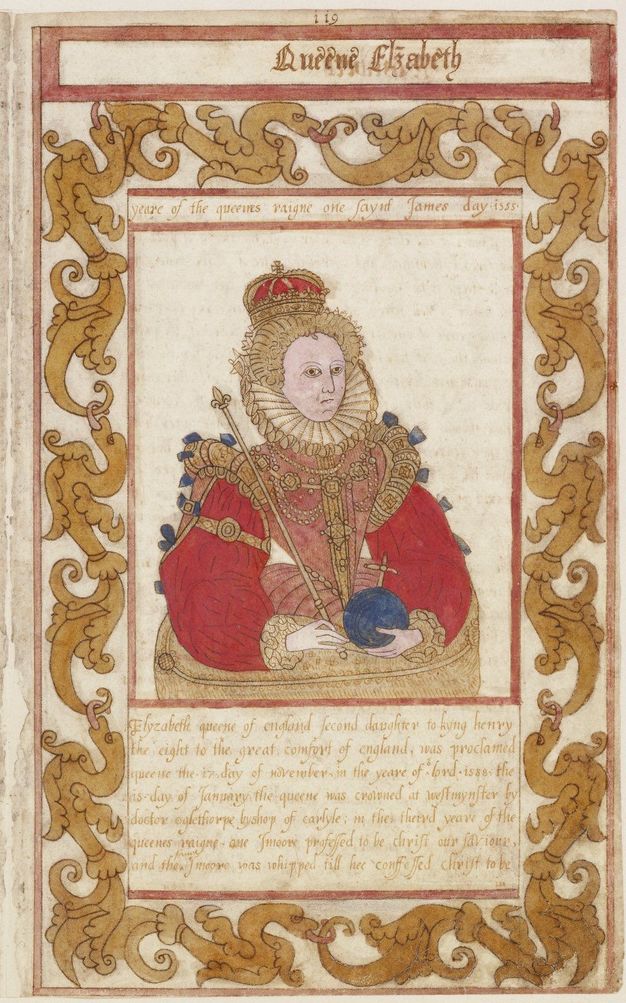 119
Queene Elzabeth
yeare of the queenes raigne one saynt James day .1555.
Elyzabeth queene of england second daughter to kyng henry
the eight to the great comfort of england, was proclamed
queene the .17. day of november in the yeare of lord .1558. the
15. day of January the queene was crowned at westmynster by
doctor oglethorpe byshop of carlyle; in the therd yeare of the
queenes raigne one Jmoore professed to be christ our saviour,
and the Jmoore was whipped till hee confessed christ to be